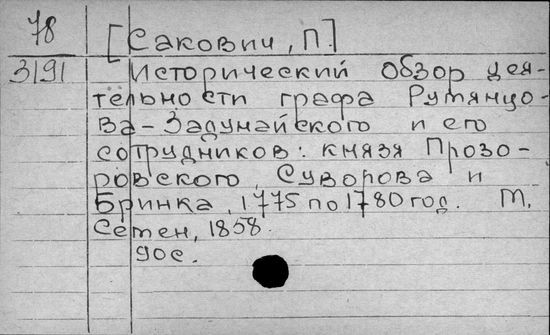 78
[Сакович, П.]
3191
Исторический обзор дея-
тельности графа Румянцо-
ва-Задунайского и его
сотрудников: князя Прозо-
ровского, Суворова и
Бринка, 1775 по 1780 год. М.
Семен, 1858.
90 с.